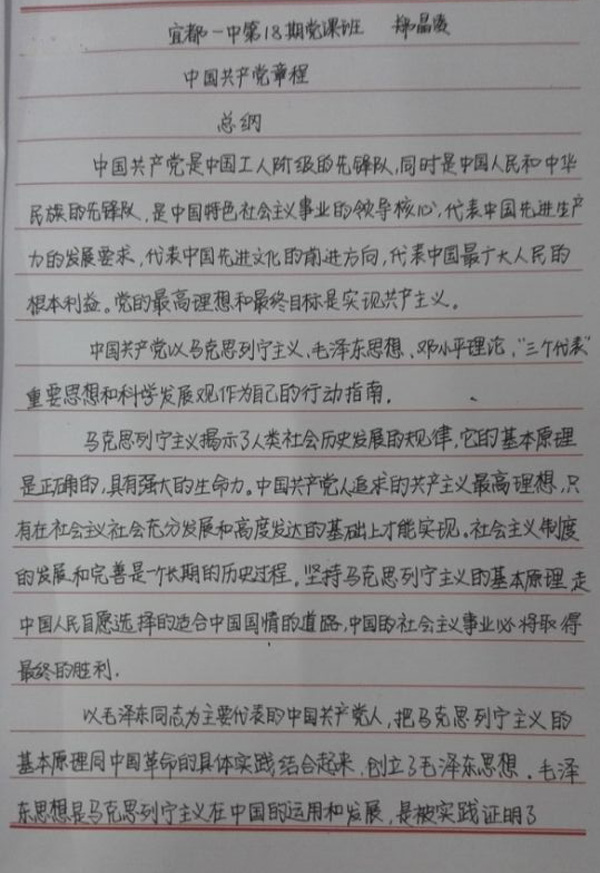 宜都一中第18期党课班 郑晶凌
中国共产党章程
总纲
中国共产党是中国工人阶级的先锋队,同时是中国人民和中华
民族的先锋队,是中国特色社会主义事业的领导核心,代表中国先进生产
力的发展要求,代表中国先进文化的前进方向,代表中国最广大人民的
根本利益。党的最高理想和最终目标是实现共产主义。
中国共产党以马克思列宁主义、毛泽东思想、邓小平理论、“三个代表”
重要思想和科学发展观作为自己的行动指南.
马克思列宁主义揭示了人类社会历史发展的规律,它的基本原理
是正确的,具有强大的生命力。中国共产党人追求的共产主义最高理想,只
有在社会主义社会充分发展和高度发达的基础上才能实现。社会主义制度
的发展和完善是一个长期的历史过程。坚持马克思列宁主义的基本原理,走
中国人民自愿选择的适合中国国情的道路,中国的社会主义事业必将取得
最终的胜利.
以毛泽东同志为主要代表的中国共产党人,把马克思列宁主义的
基本原理同中国革命的具体实践结合起来,创立了毛泽东思想.毛泽
东思想是马克思列宁主义在中国的运用和发展,是被实践证明了